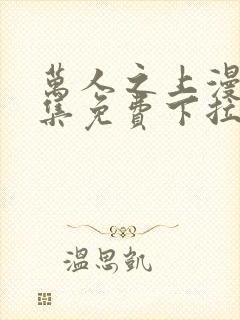 萬人之上漫
集免費下拉
溫思凱